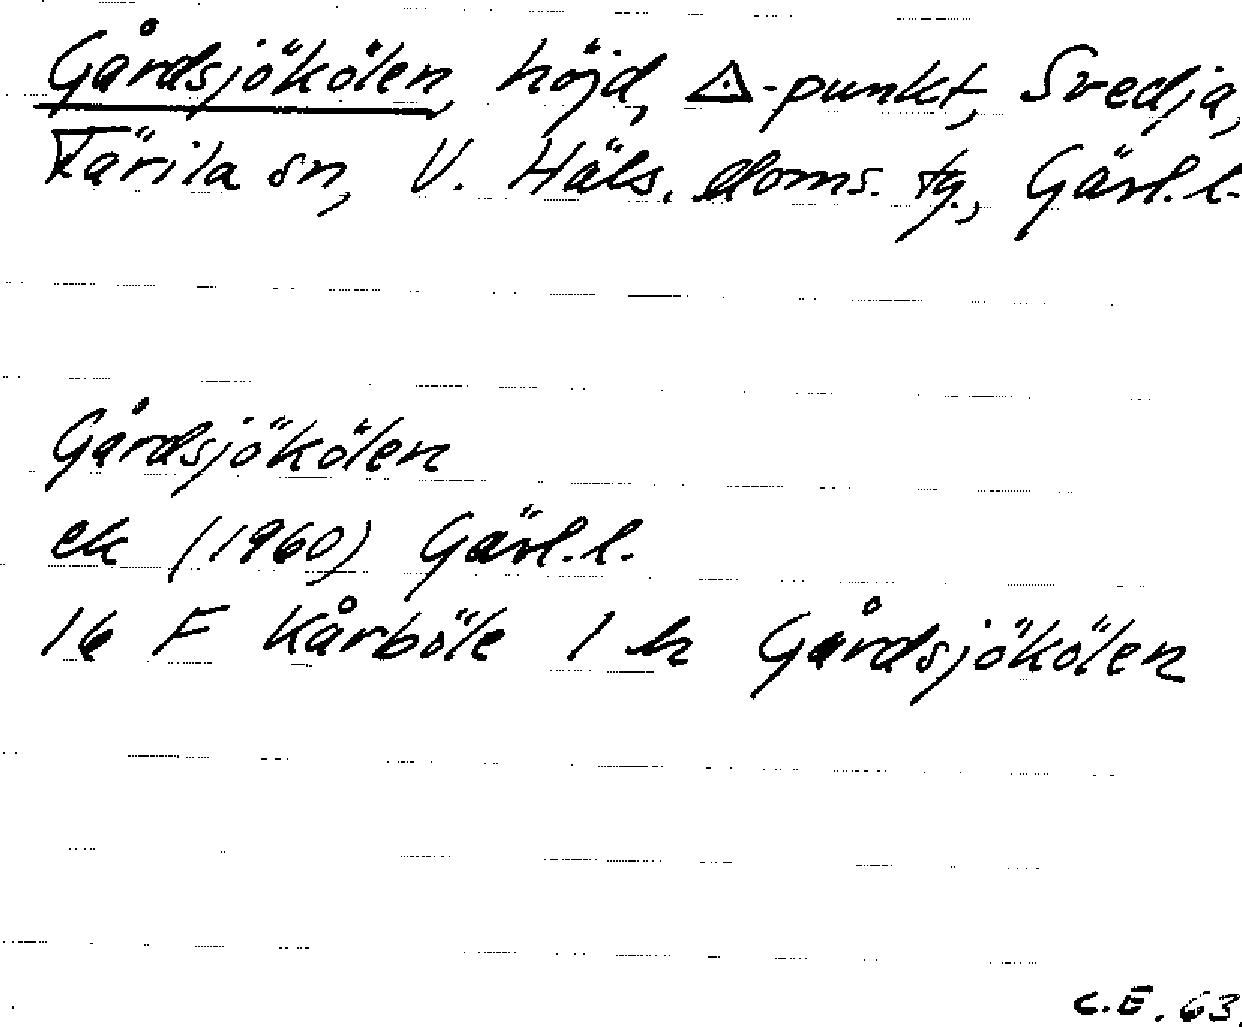 Gårdsjökölen, höjd, △-punkt, Svedja,
Färila sn, V. Häls. doms. tg., Gävl. l.
Gårdsjökölen
ek (1960) Gävl. l.
16 F Kårböle 1 h Gårdsjökölen
C.E. 63.